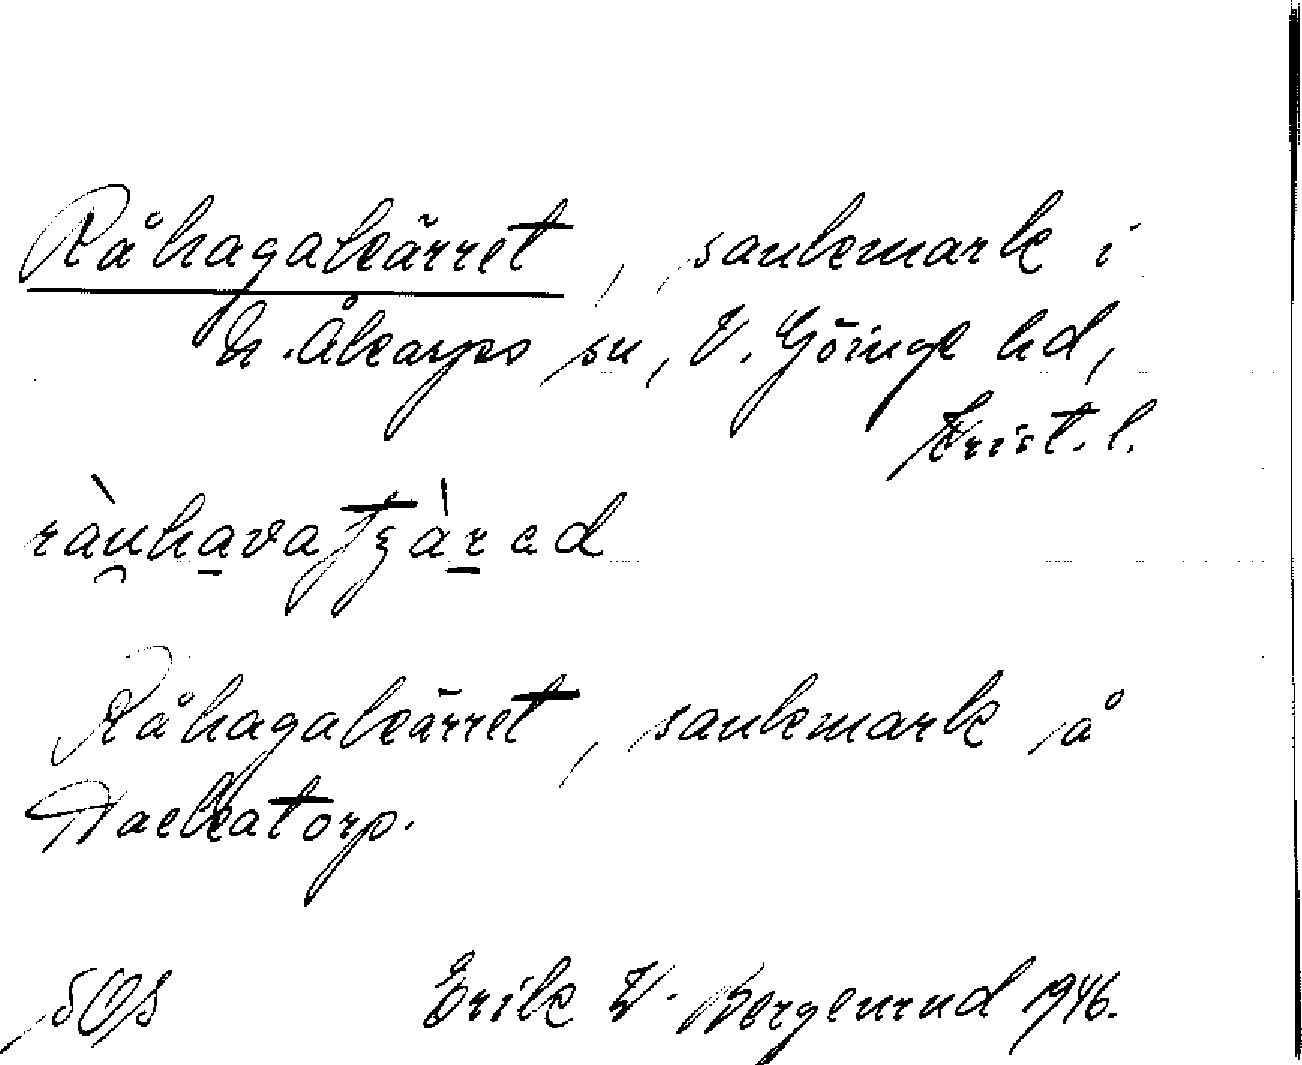 Råhagakärret, sankmark i
N. Åkarps sn, V. Göinge hd,
Krist. l.
Råhagakärret, sankmark å
Nackatorp.
SOS Erik W. Bergenrud 1946.